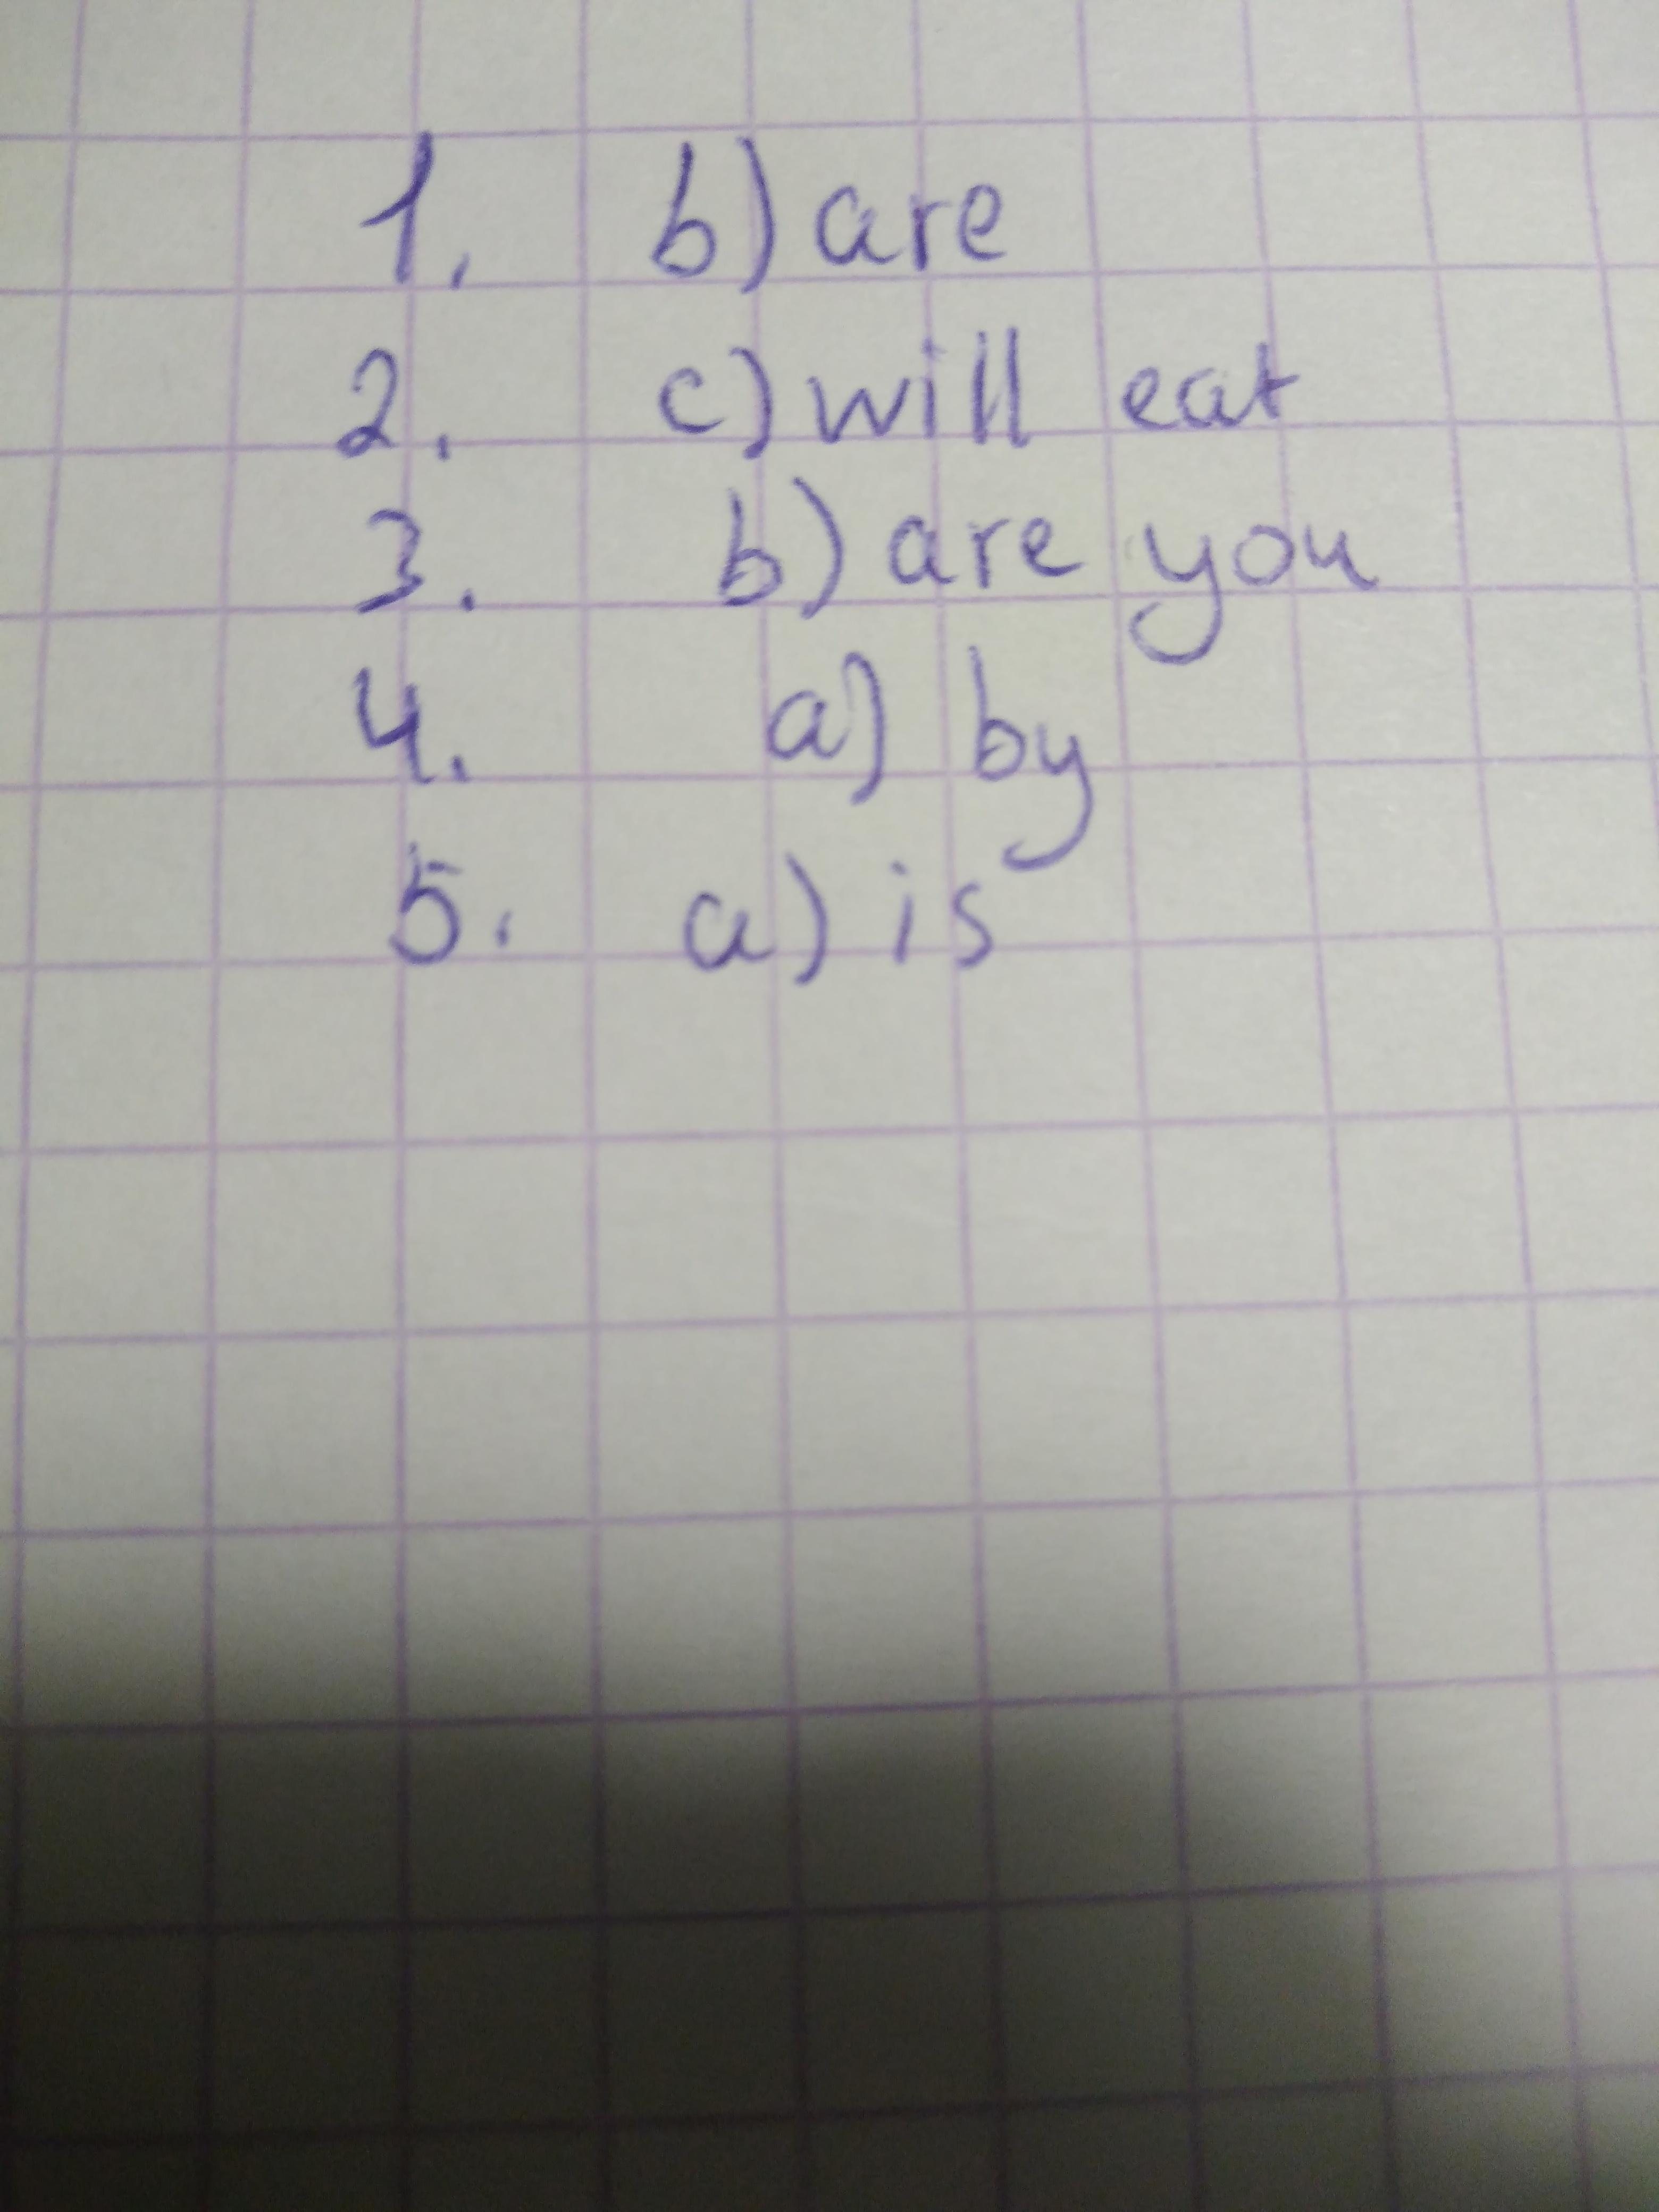 1. b) are
2. c) will eat
3. b) are you
4. a) by
5. a) is